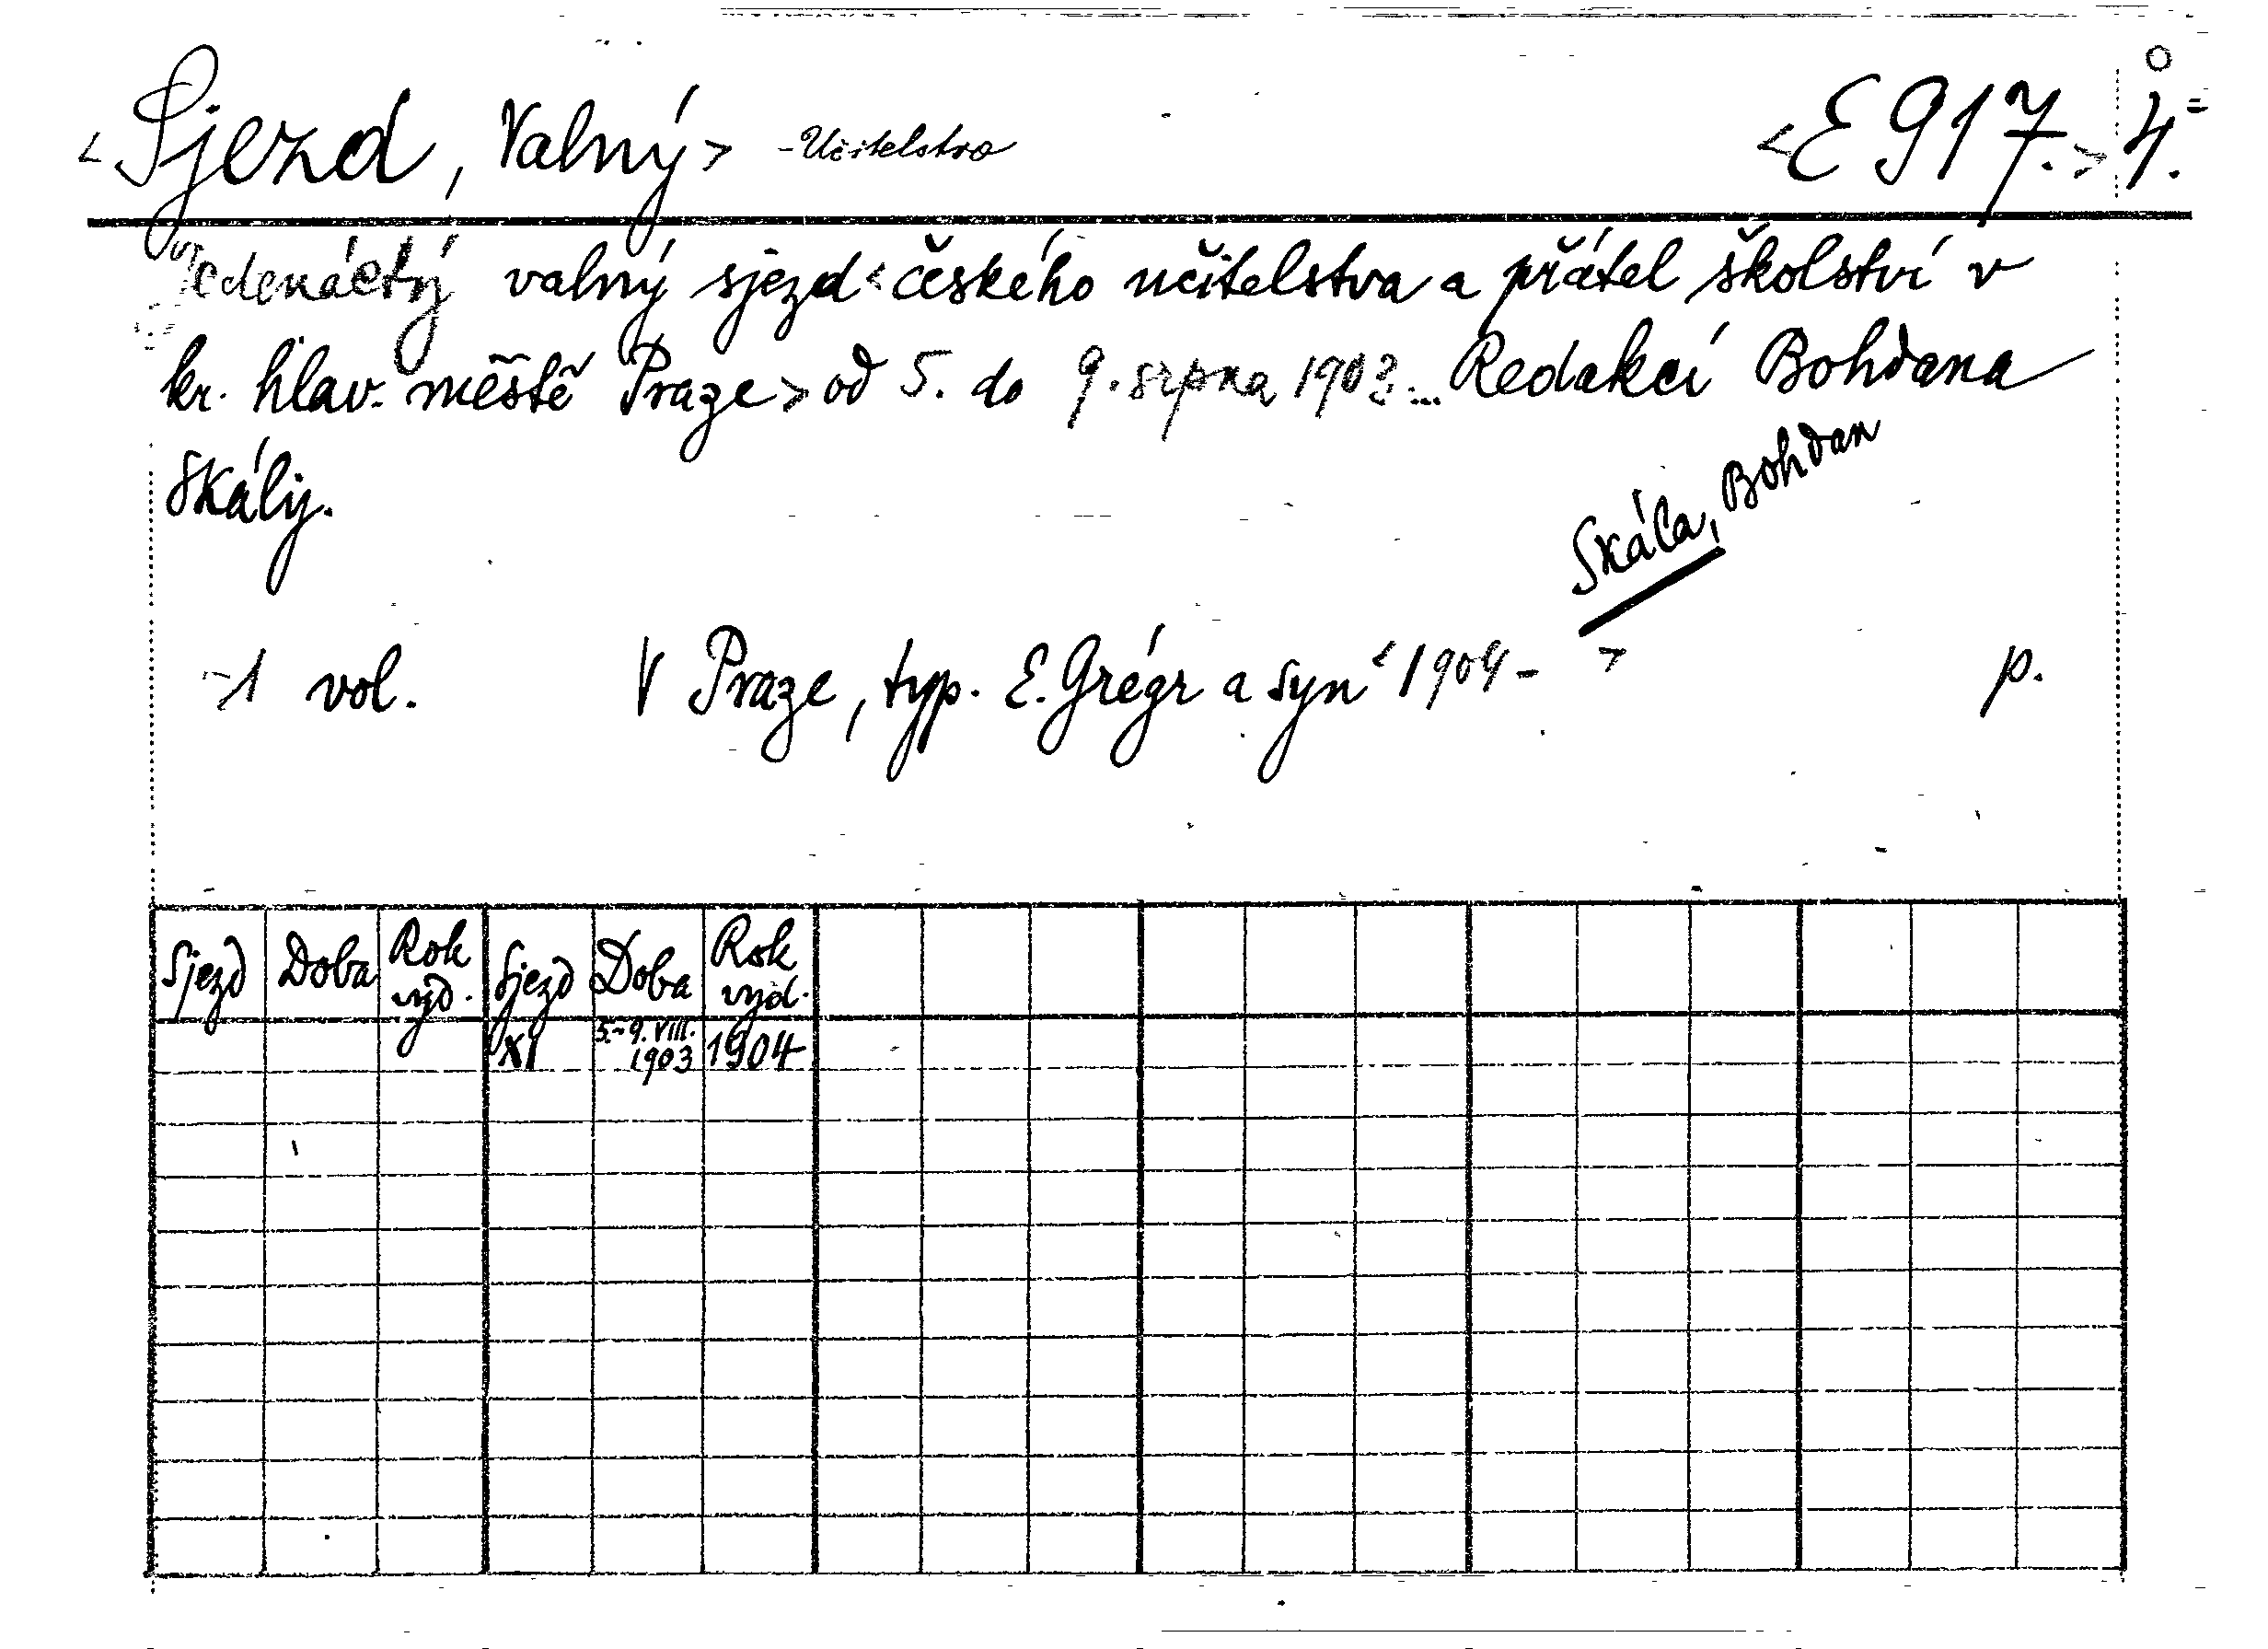 < Sjezd, Valný > - Učitelstvo < E 917. > 4°.
Jedenáctý valný sjezd < českého učitelstva a přátel školství v
kr. hlav. městě Praze > od 5. do 9. srpna 1903... Redakcí Bohdana
Skály.
Skála, Bohdan
- 1 vol. V Praze, typ. E. Grégr a syn < 1904 - > p.
Sjezd Doba Rok vyd. Sjezd Doba Rok vyd.
XI 5.-9. VIII. 1903 1904